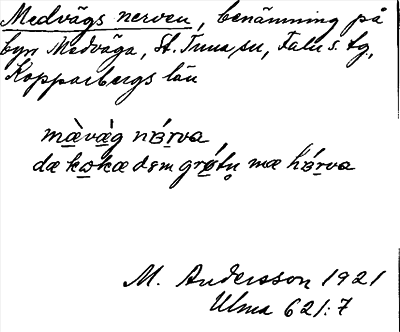 Medvägs nerven, benämning på
byn Medväga, St. Tuna sn, Falu s. tg,
Kopparbergs län
mæ̀væ̀g nárva
dæ kokæ dem grǿtn mæ hárva
M. Andersson 1921
Ulma 621:7